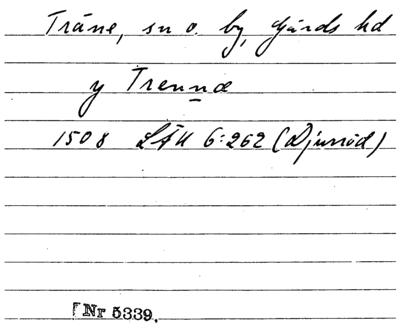 Träne, sn o. by, Gärds hd
y Trennæ
1508 LÄU 6:262 (Djurröd)
Nr 5339.